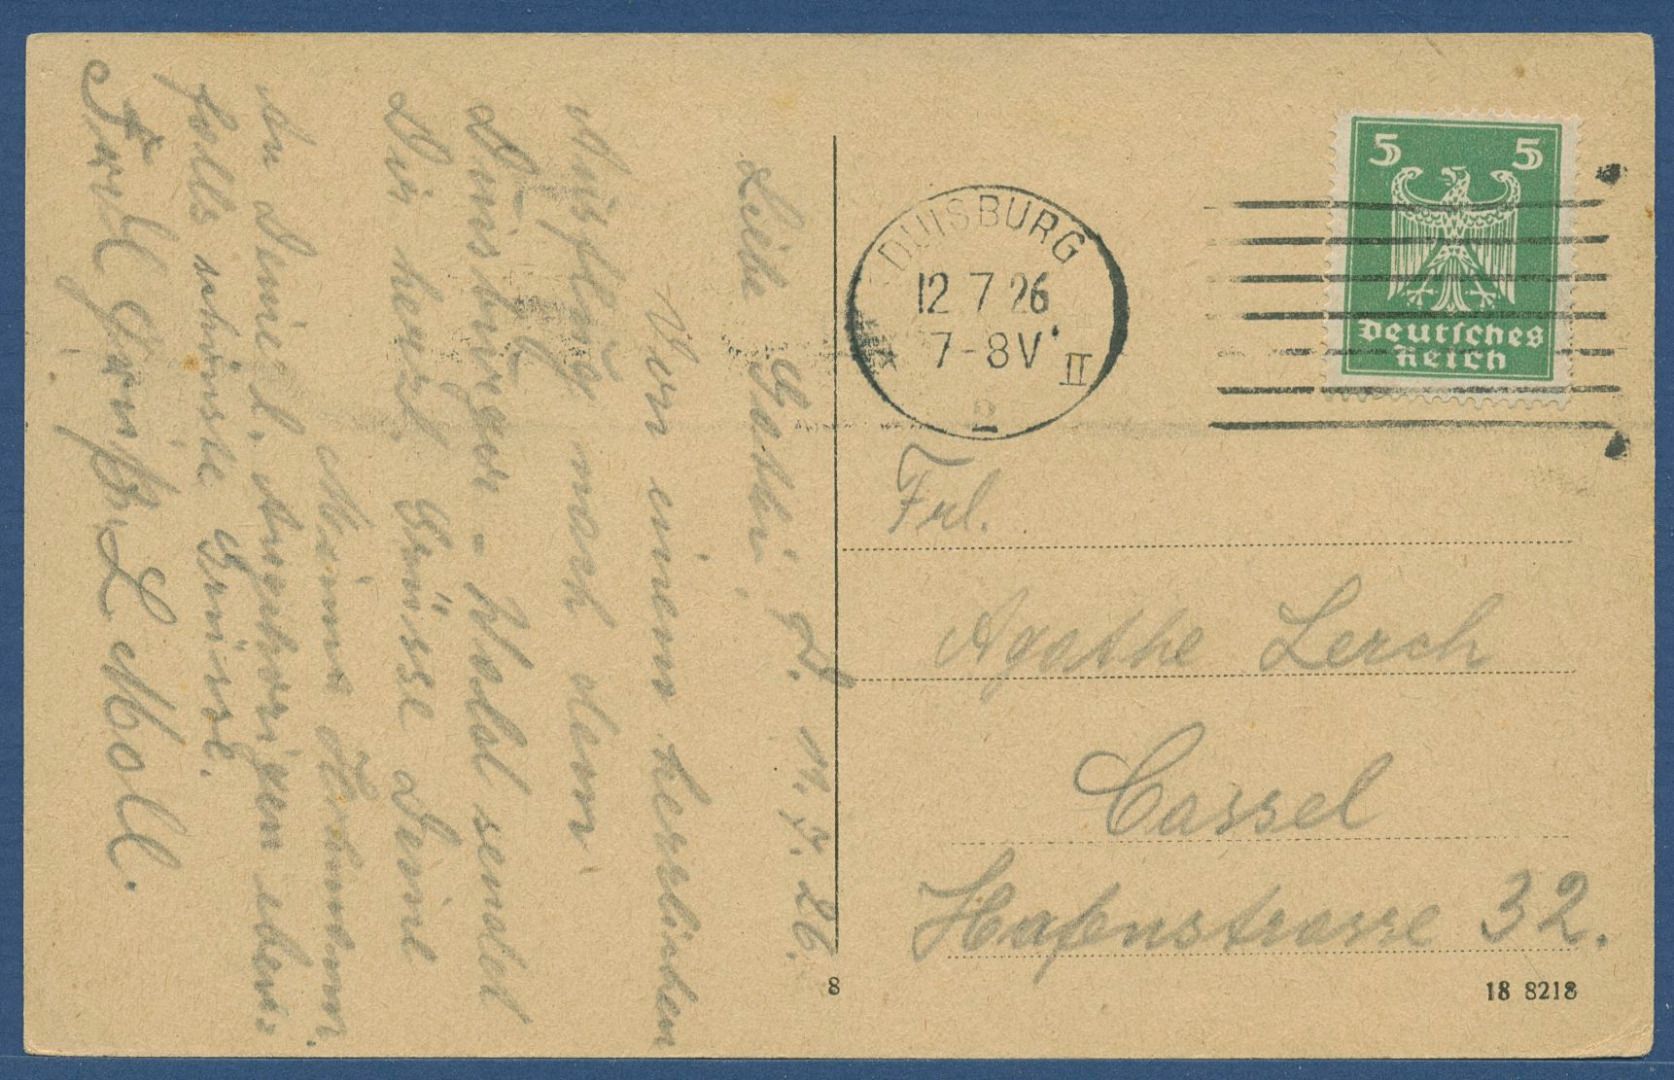 Liebe Gothi! D. 11.7.26.
Von einem herrlichen
Ausflug nach dem
Duisburger-Wald sendet
Dir herzl. Grüsse Deine
An Deine l. Angehörigen eben-
falls schönste Grüsse.
L. Moll.
DUISBURG
12 7 26
7-8V
II
2
5 5
Deutsches
Reich
Frl.
Agathe Lerch
Cassel
Hafenstrasse 32.
8
18 8218